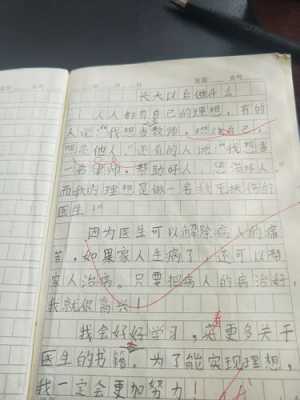 长大以后做什么
人人都有自己的理想，有的
人说“我想当教师，
他人”还有的人说“我想当
一名律师，帮助好人，惩治坏人
而我的理想是做一名
医生”
因为医生可以解除病人的痛
苦，如果家人生病了，还可以帮
家人治病。只要把病人的病治好，
我就很高兴！
我会好好学习，看更多关于
医生的书籍，为了能实现理想，
我一定会更加努力！